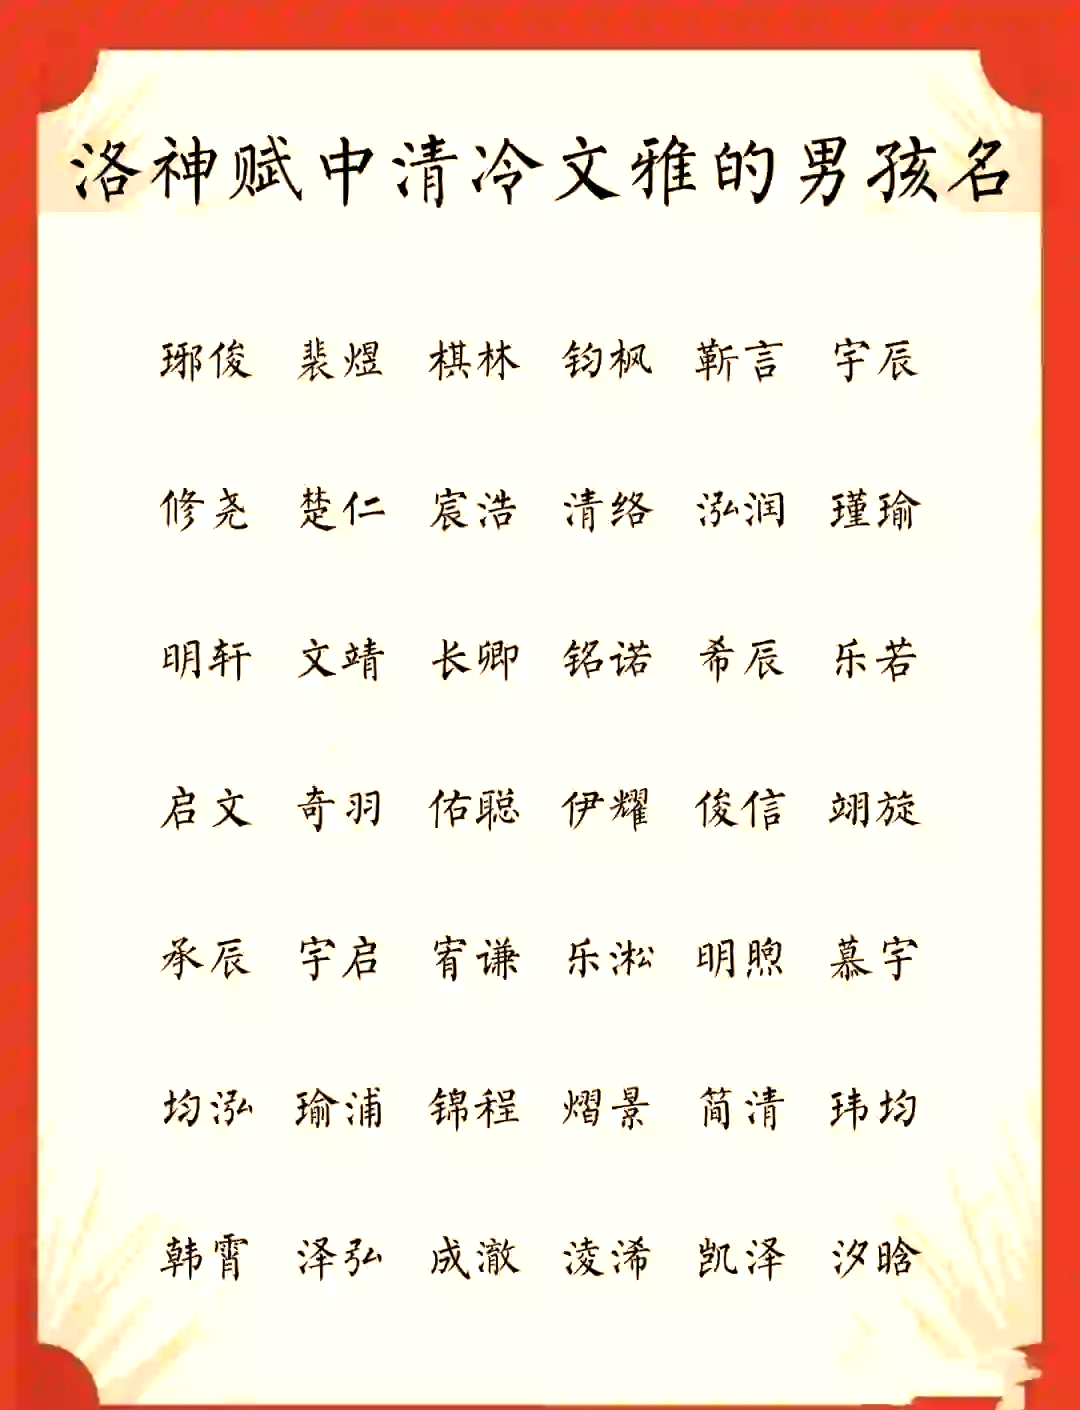 洛神赋中清冷文雅的男孩名
琊俊 裴煜 棋林 钧枫 靳言 宇辰
修尧 楚仁 宸浩 清络 泓润 瑾瑜
明轩 文靖 长卿 铭诺 希辰 乐若
启文 奇羽 佑聪 伊耀 俊信 翊旋
承辰 宇启 宥谦 乐淞 明煦 慕宇
均泓 瑜浦 锦程 熠景 简清 玮均
韩霄 泽弘 成澈 凌浠 凯泽 汐晗